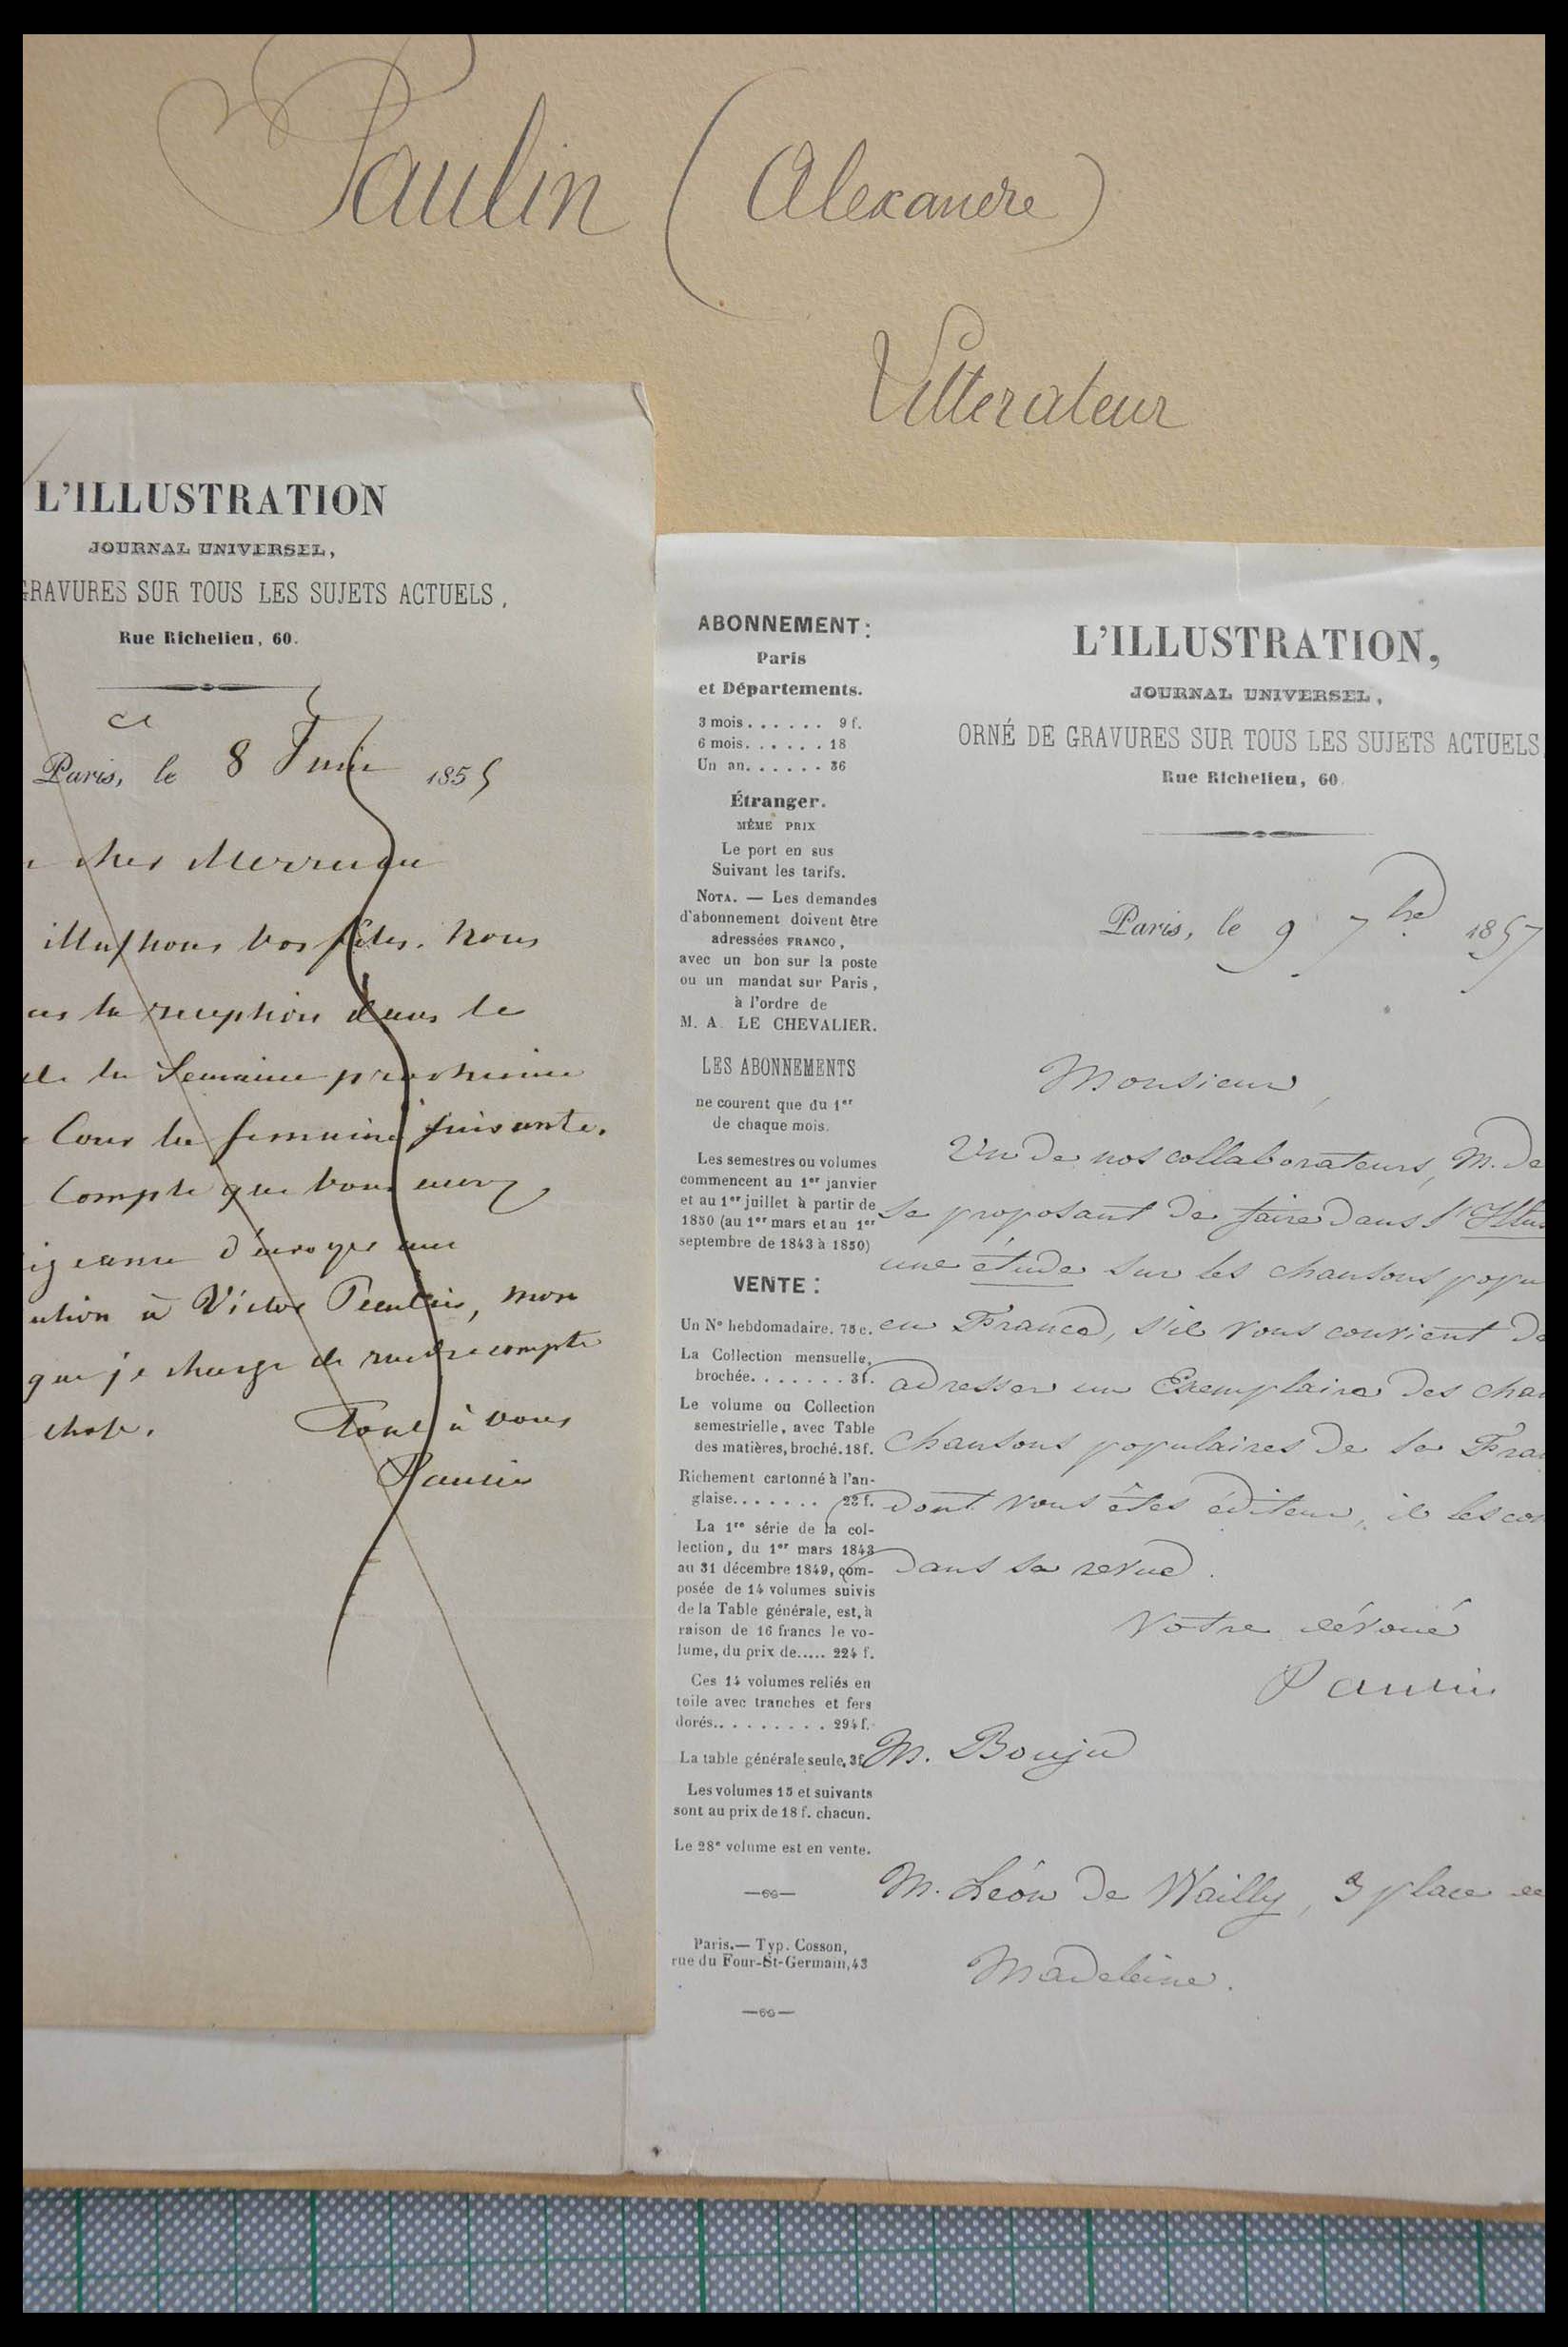 Paulin (Alexandre)
Litterateur
L'ILLUSTRATION
JOURNAL UNIVERSEL,
GRAVURES SUR TOUS LES SUJETS ACTUELS,
Rue Richelieu, 60.
ce
Paris, le 8 Juin 1855
cher Merruau
illustrons vos fêtes. Nous
la reception dans le
de la Semaine prochaine
Cour la semaine suivante.
Compte que vous aurez
d'envoyer une
à Victor Paulin, mon
que je charge de rendre compte
chose. Tout à vous
Paulin
ABONNEMENT:
Paris
et Départements.
3 mois...... 9 f.
6 mois...... 18
Un an...... 36
Étranger.
MÊME PRIX
Le port en sus
Suivant les tarifs.
NOTA. — Les demandes
d'abonnement doivent être
adressées FRANCO,
avec un bon sur la poste
ou un mandat sur Paris,
à l'ordre de
M. A. LE CHEVALIER.
LES ABONNEMENTS
ne courent que du 1er
de chaque mois.
Les semestres ou volumes
commencent au 1er janvier
et au 1er juillet à partir de
1850 (au 1er mars et au 1er
septembre de 1843 à 1850)
VENTE:
Un No hebdomadaire. 75 c.
La Collection mensuelle,
brochée....... 3 f.
Le volume ou Collection
semestrielle, avec Table
des matières, broché. 18 f.
Richement cartonné à l'an-
glaise....... 23 f.
La 1re série de la col-
lection, du 1er mars 1843
au 31 décembre 1849, com-
posée de 14 volumes suivis
de la Table générale, est, à
raison de 16 francs le vo-
lume, du prix de..... 224 f.
Ces 14 volumes reliés en
toile avec tranches et fers
dorés......... 294 f.
La table générale seule, 3 f.
Les volumes 15 et suivants
sont au prix de 18 f. chacun.
Le 28e volume est en vente.
Paris.— Typ. Cosson,
rue du Four-St-Germain, 43
L'ILLUSTRATION,
JOURNAL UNIVERSEL,
ORNÉ DE GRAVURES SUR TOUS LES SUJETS ACTUELS
Rue Richelieu, 60
Paris, le 9 7bre 1857
Monsieur,
Un de nos collaborateurs, M. de
se proposant de faire dans l'Illus
une étude sur les chansons popu
en France, s'il vous convient de
adresser un Exemplaire des cha
Chansons populaires de la Fran
dont vous êtes éditeur, il les co
dans sa revue.
Votre dévoué
Paulin
M. Bouju
M. Léon de Wailly, 3 place de
Madeleine.